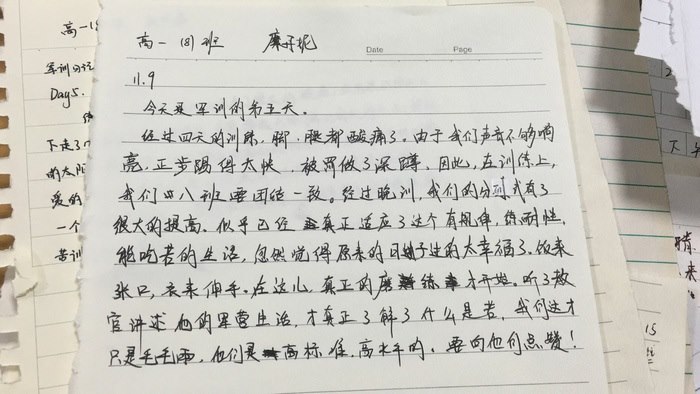 高一 (8) 班 廖子妮
Date Page
11.9
今天是军训的第五天。
经过四天的训练,脚、腿都酸痛了。由于我们声音不够响
亮,正步踢得太快,被罚做了深蹲。因此,在训练上,
我们四八班要团结一致。经过晚训,我们的分列式有了
很大的提高。似乎已经真正适应了这个有规律,练耐性,
能吃苦的生活,忽然觉得原来的日子过的太幸福了。饭来
张口,衣来伸手。在这儿,真正的磨练才开始。听了教
官讲述他的军营生活,才真正了解了什么是苦,我们这才
只是毛毛雨,他们是高标准,高水平的,要向他们点赞!
高一(8
军训日记
Day5.
下走了
的太阳
爱的
一个
苦训
下午
晴
来
15